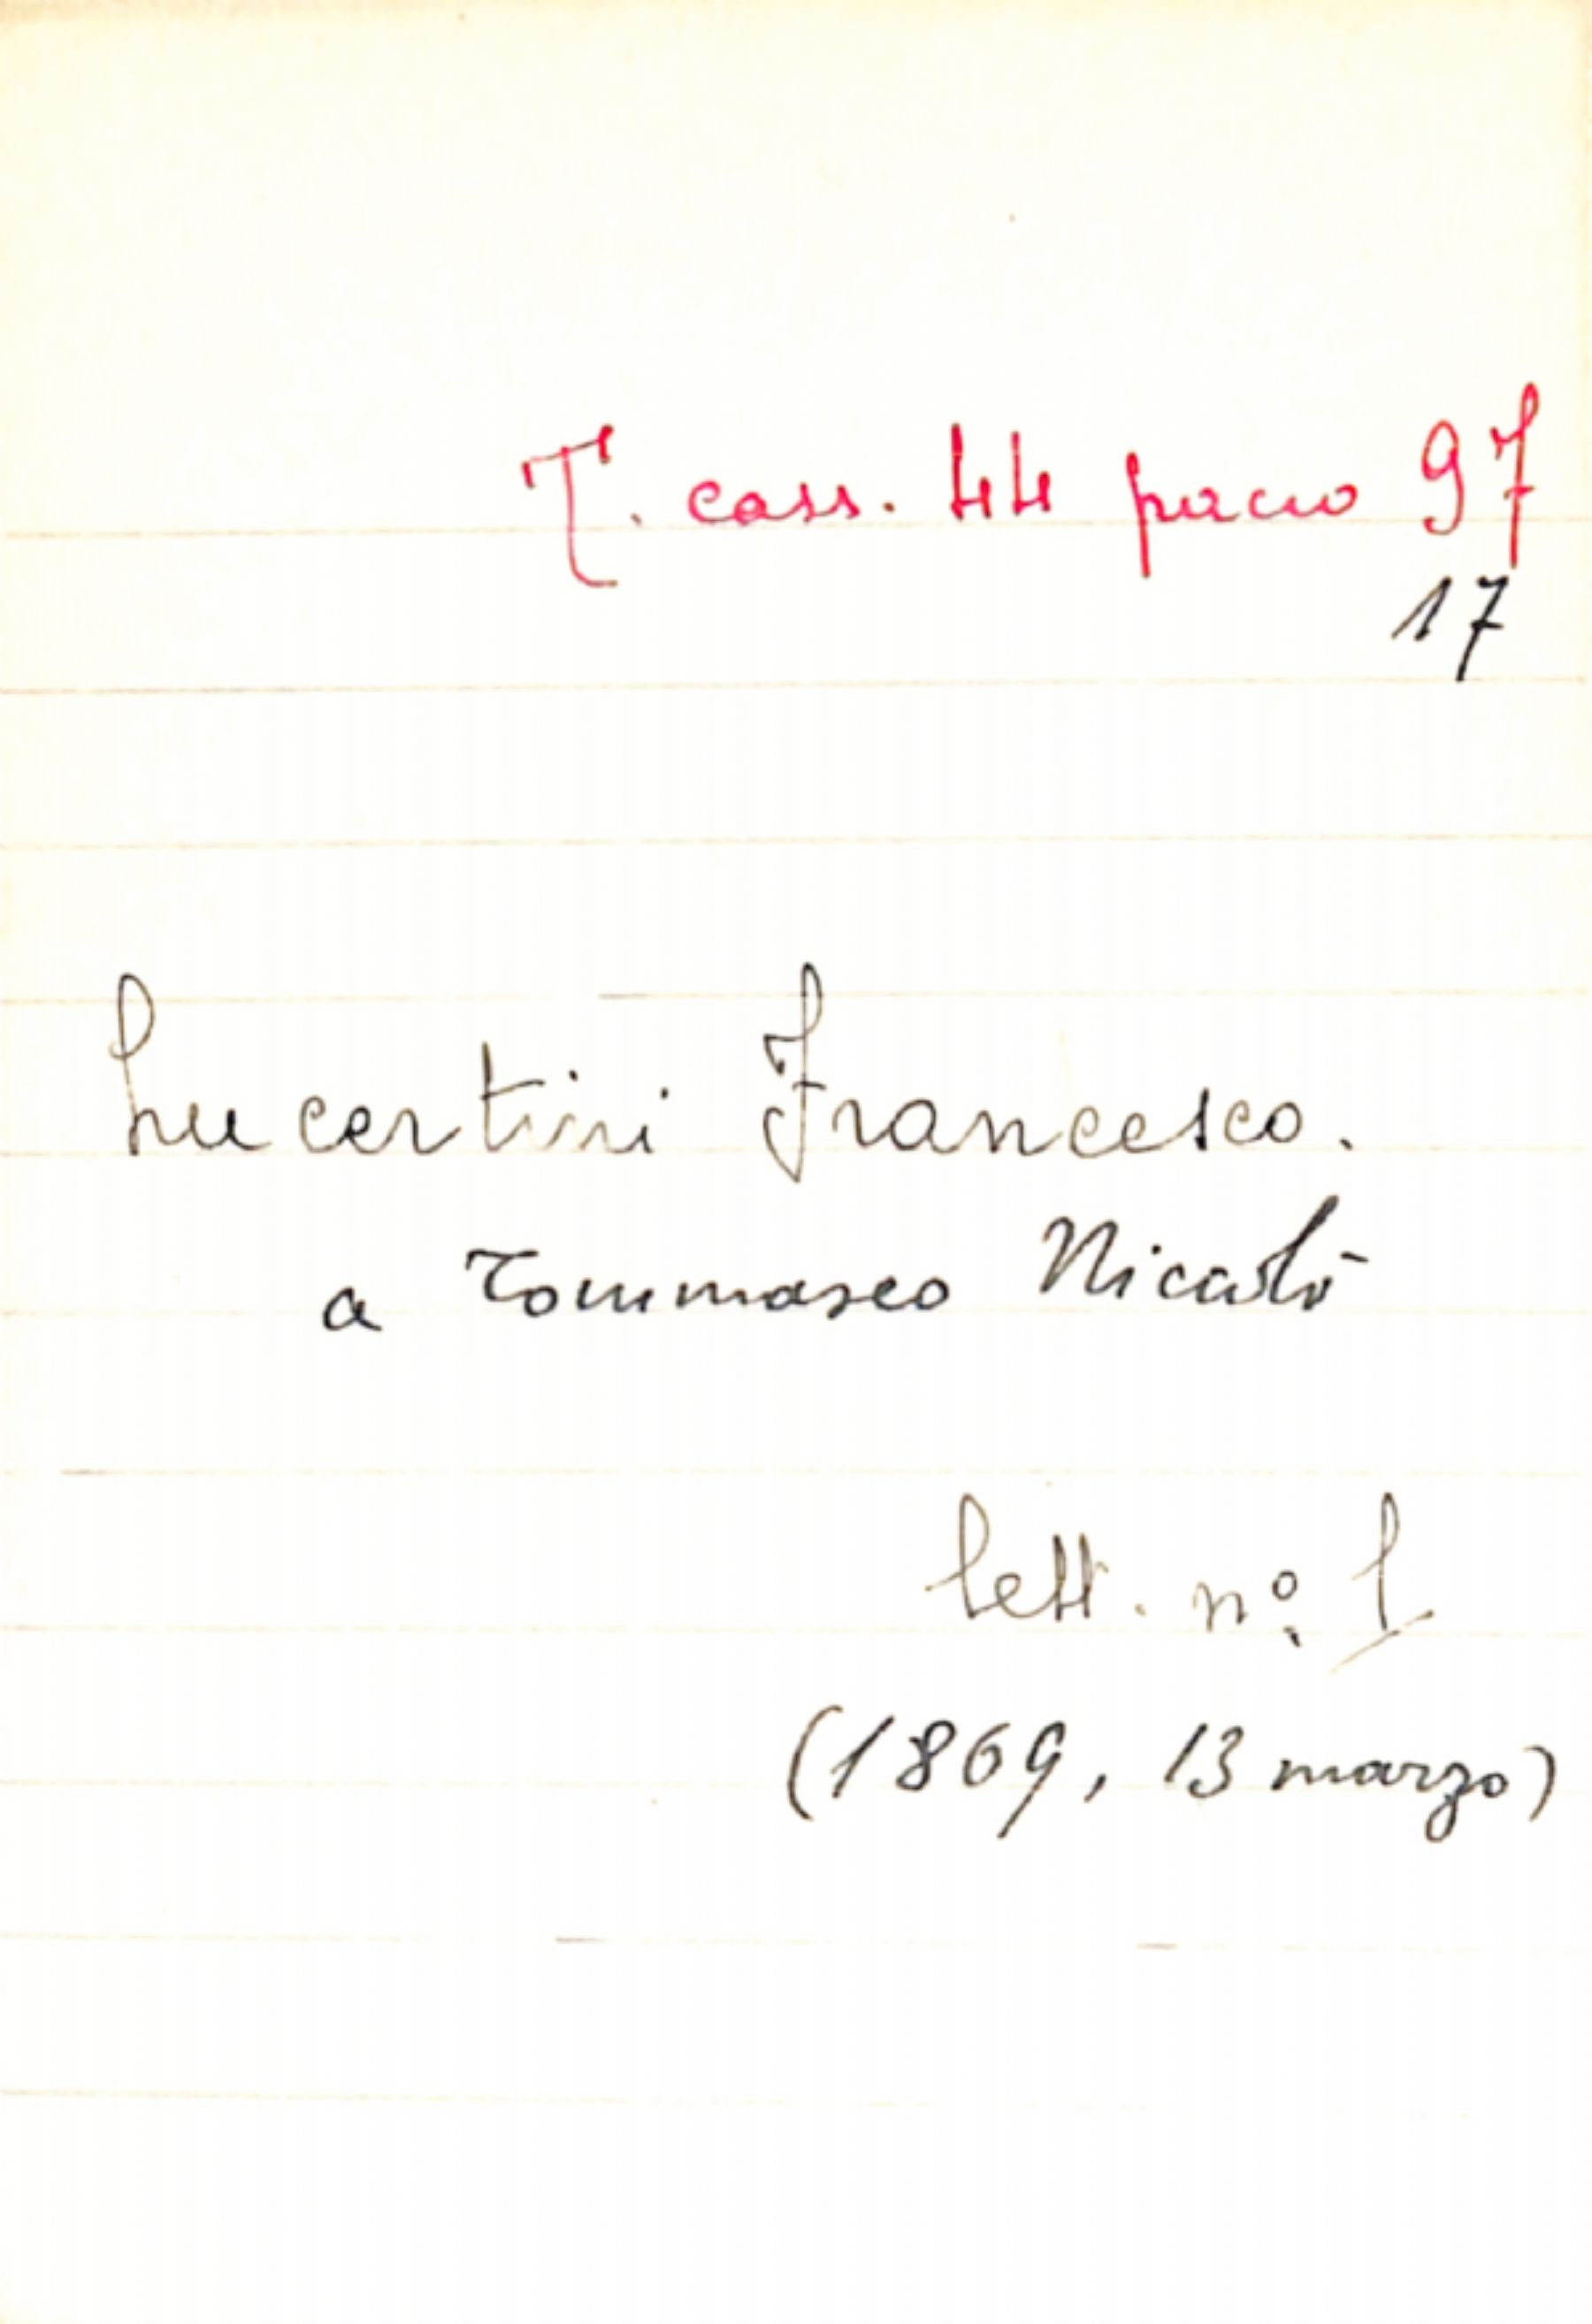 T. cass. 44 pacco 97
17
Lucertini Francesco.
a Tommaseo Nicolò
lett. nº. 1
(1869, 13 marzo)